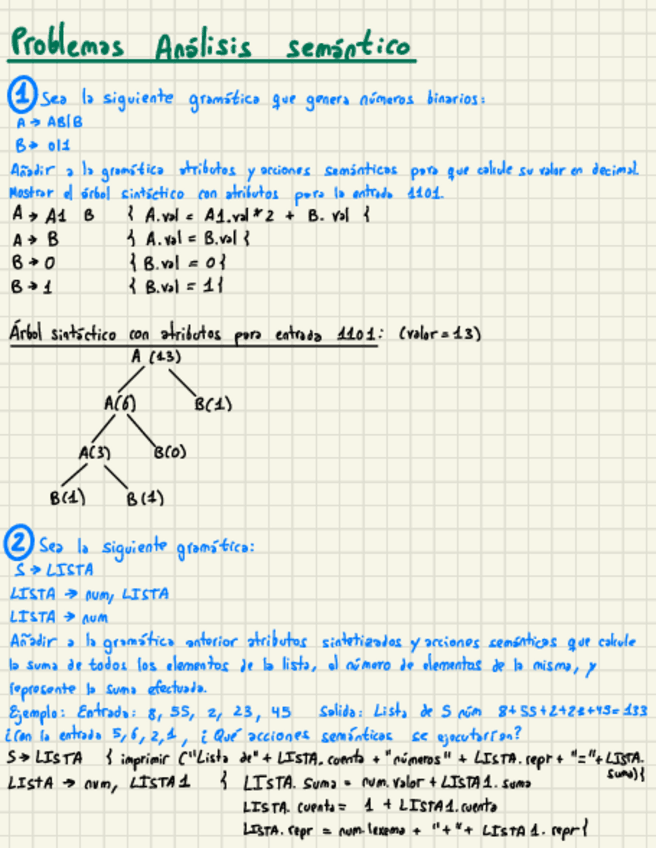 Problemas Análisis semántico
1 Sea la siguiente gramática que genera números binarios:
A → AB|B
B → 0|1
Añadir a la gramática atributos y acciones semánticas para que calcule su valor en decimal.
Mostrar el árbol sintáctico con atributos para la entrada 1101.
A → A1 B { A.val = A1.val*2 + B. val {
A → B { A.val = B.val {
B → 0 { B.val = 0 {
B → 1 { B.val = 1 {
Árbol sintáctico con atributos para entrada 1101: (valor = 13)
A (13)
A(6) B(1)
A(3) B(0)
B(1) B(1)
2 Sea la siguiente gramática:
S → LISTA
LISTA → num, LISTA
LISTA → num
Añadir a la gramática anterior atributos sintetizados y acciones semánticas que calcule
la suma de todos los elementos de la lista, el número de elementos de la misma, y
represente la suma efectuada.
Ejemplo: Entrada: 8, 55, 2, 23, 45 Salida: Lista de 5 núm 8+55+2+23+45=133
¿Con la entrada 5,6,2,1, ¿Qué acciones semánticas se ejecutarían?
S → LISTA { imprimir ("Lista de" + LISTA. cuenta + "números" + LISTA. repr + "=" + LISTA.
suma) {
LISTA → num, LISTA1 { LISTA. suma = num.valor + LISTA1. suma
LISTA. cuenta = 1 + LISTA1.cuenta
LISTA. repr = num.lexema + "+" + LISTA1. repr {